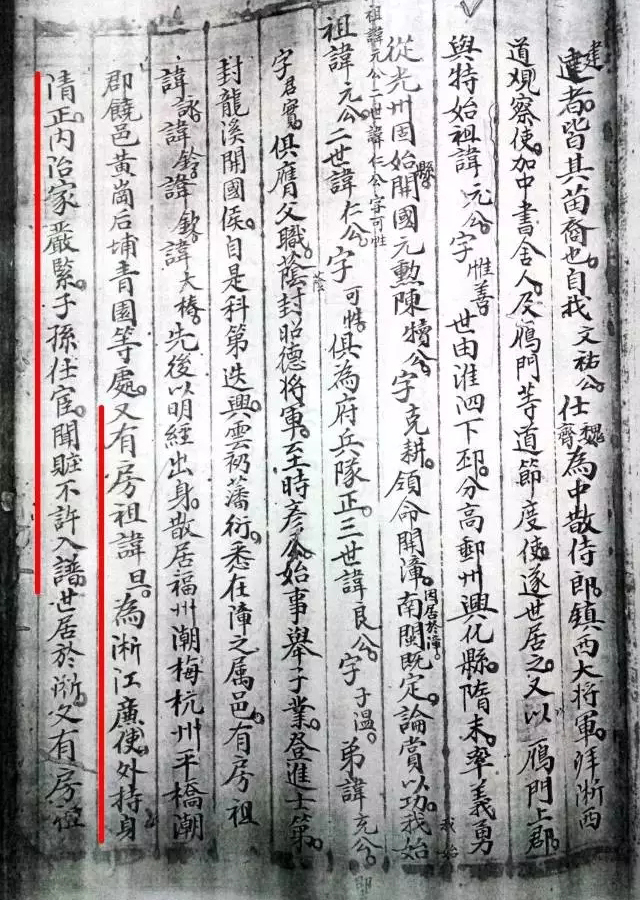 建
達者皆其苗裔也自我文祐公仕魏齊為中散侍郎鎮西大將軍拜浙西
道觀察使加中書舍人及鴈門等道節度使遂世居之又以鴈門上郡
與特始祖諱元公字惟善世由淮泗下邳分高郵州興化縣隋末率義勇
從光州固始縣開國元勲陳犢公字克耕領命開漳因居於漳南閩既定論賞以功我始
祖諱元公二世諱仁公字可性
祖諱元公二世諱仁公字可性俱為府兵隊正三世諱良公字子溫弟諱克公
字君實俱膺父職蔭封昭德將軍至時彥公始事舉子業登進士第
封龍溪開國侯自是科第迭興雲礽蕃衍悉在漳之属邑有房祖
諱詠諱鈴諱欽諱大椿先後以明經出身散居福州潮梅杭州平橋潮
郡饒邑黃崗后埔青園等處又有房祖諱旦為浙江廣使外持身
清正内治家嚴緊子孫仕宦聞賍不許入譜世居於浙又有房